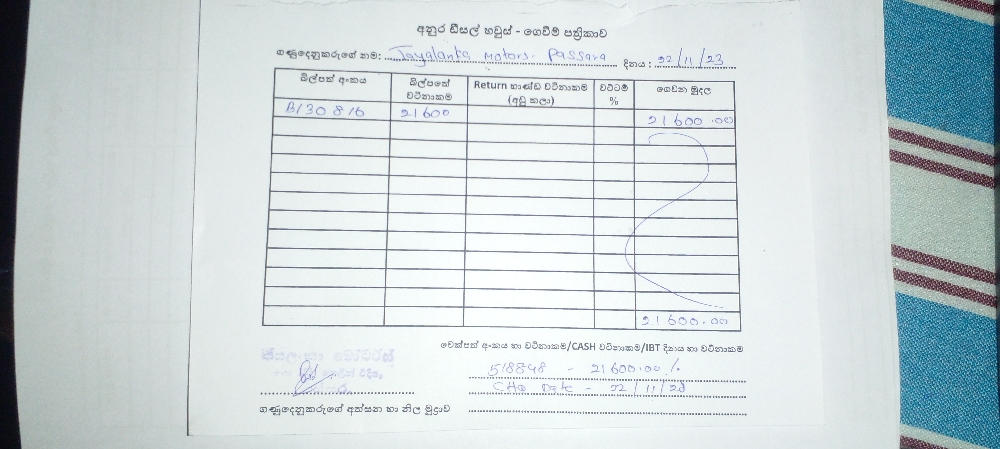 අනුර ඩීසල් හවුස් - ගෙවීම් පත්‍රිකාව
ගණුදෙනුකරුගේ නම: Jayalanka Motors. Passara දිනය : 22/11/23
බිල්පත් අංකය බිල්පතේ වටිනාකම Return භාණ්ඩ වටිනාකම (අඩු කලා) වට්ටම් % ගෙවන මුදල
B130816 21600 21600.00
21600.00
චෙක්පත් අංකය හා වටිනාකම/CASH වටිනාකම/IBT දිනය හා වටිනාකම
518848 - 21600.00 /.
CHQ Date - 22/11/23
ගණුදෙනුකරුගේ අත්සන හා නිල මුද්‍රාව